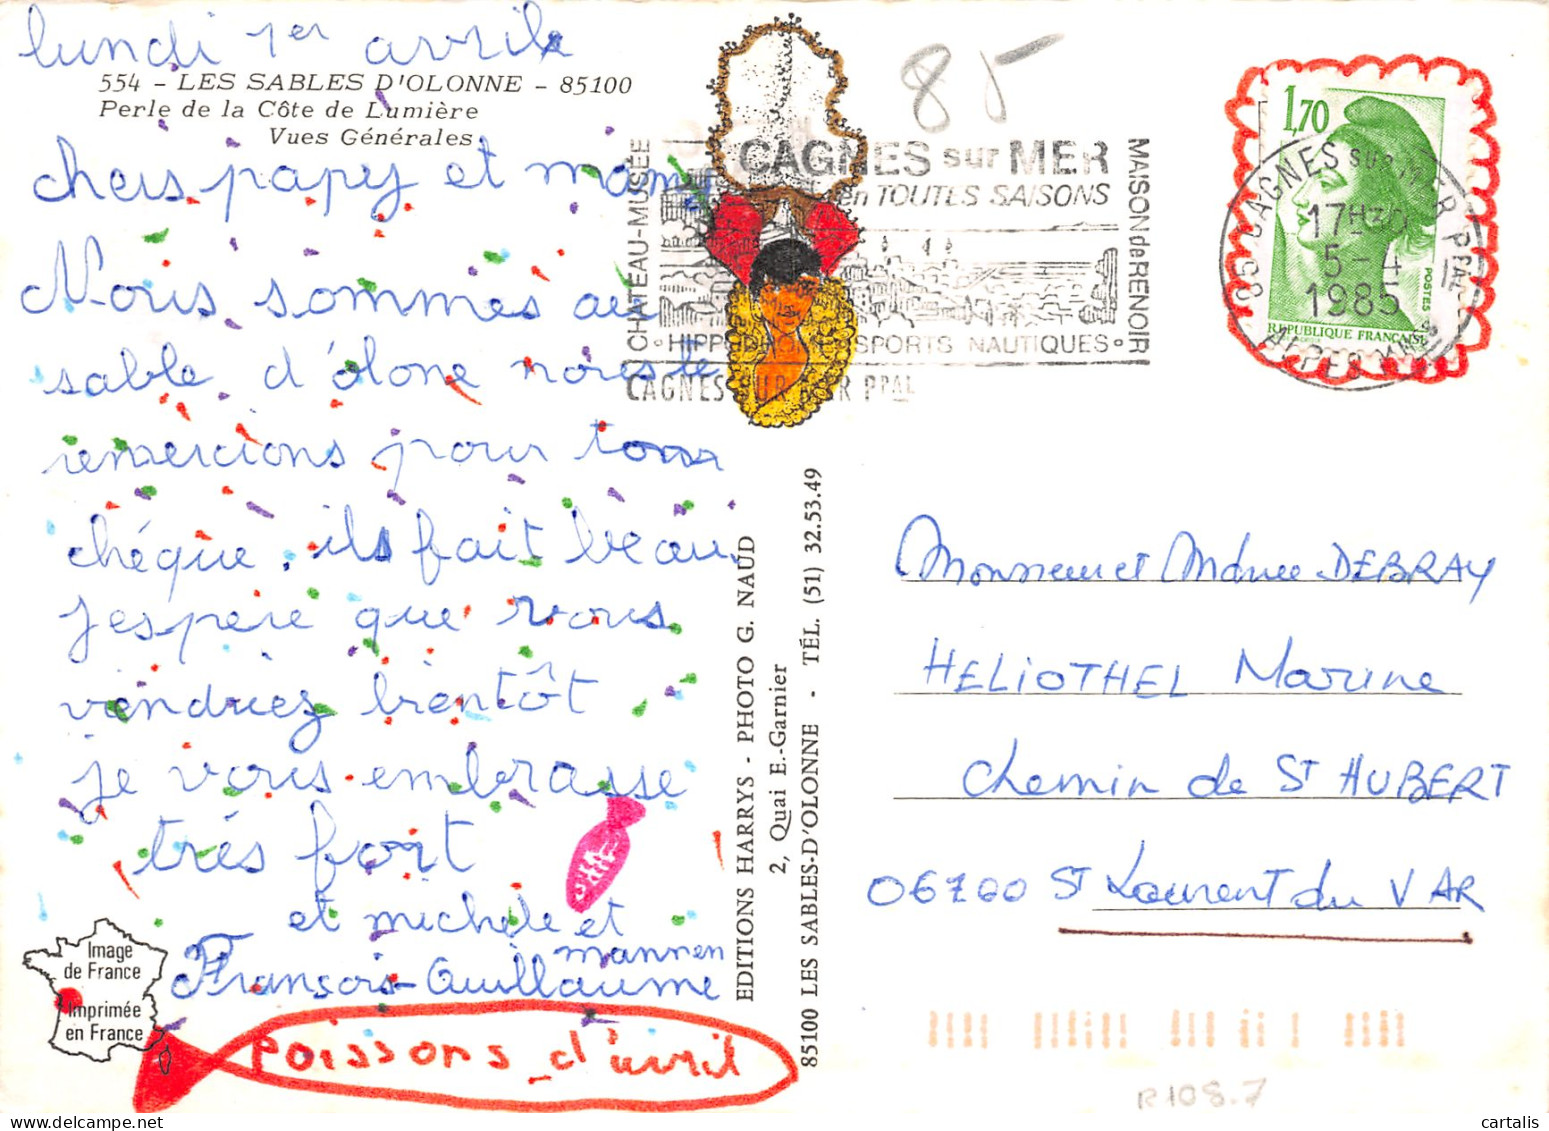 lundi 1er avril
554 - LES SABLES D'OLONNE - 85100
Perle de la Côte de Lumière
Vues Générales
chers papy et mamy
Nous sommes au
sable d'olone nous te
remercions pour ton
chéque. ils fait beau
j'espère que vous
viendriez bientôt
je vous embrasse
trés fort
et michele et
mannen
François-Guillaume
Poissons d'avril
Image
de France
Imprimée
en France
EDITIONS HARRYS - PHOTO G. NAUD
2, Quai E.-Garnier
85100 LES SABLES-D'OLONNE - TÉL. (51) 32.53.49
85
CHATEAU-MUSÉE
CAGNES sur MER
en TOUTES SAISONS
MAISON de RENOIR
HIPPODROME SPORTS NAUTIQUES
CAGNES SUR MER PPAL
1,70
POSTES
REPUBLIQUE FRANÇAISE
CAGNES SUR MER PPAL
17H30
5-4
1985
06
Monsieur et Mdme DEBRAY
HELIOTHEL Marine
Chemin de ST HUBERT
06700 ST Laurent du VAR
R108.7
cartalis